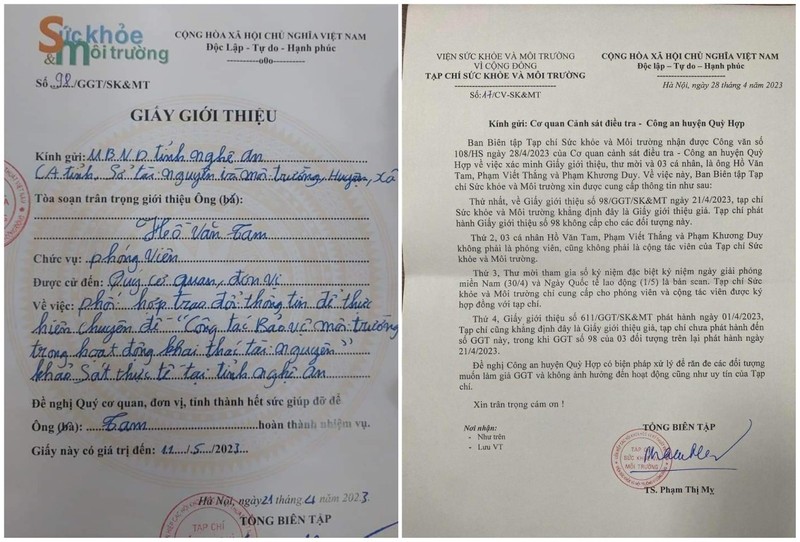 Sức khỏe
& Môi trường
CỘNG HÒA XÃ HỘI CHỦ NGHĨA VIỆT NAM
Độc Lập - Tự do - Hạnh phúc
---------o0o---------
Số 98/GGT/SK&MT
GIẤY GIỚI THIỆU
Kính gửi: U.B.N.D tỉnh Nghệ An
CA tỉnh, Sở tài nguyên và môi trường, Huyện, xã
Tòa soạn trân trọng giới thiệu Ông (bà):
Hồ Văn Tam
Chức vụ: phóng Viên
Được cử đến: Quý cơ quan, đơn vị
Về việc: phối hợp trao đổi thông tin để thực
hiện chuyên đề "Công tác Bảo vệ môi trường
trong hoạt động khai thác tài nguyên"
khảo sát thực tế tại tỉnh nghệ An
Đề nghị Quý cơ quan, đơn vị, tính thành hết sức giúp đỡ để
Ông (bà): Tam hoàn thành nhiệm vụ.
Giấy này có giá trị đến: 11 / 5 / 2023
Hà Nội, ngày 21 tháng 4 năm 2023
TỔNG BIÊN TẬP
TẠP CHÍ
VIỆN SỨC KHỎE VÀ MÔI TRƯỜNG
VÌ CỘNG ĐỒNG
TẠP CHÍ SỨC KHỎE VÀ MÔI TRƯỜNG
Số: 17/CV-SK&MT
CỘNG HÒA XÃ HỘI CHỦ NGHĨA VIỆT NAM
Độc lập – Tự do – Hạnh phúc
Hà Nội, ngày 28 tháng 4 năm 2023
Kính gửi: Cơ quan Cảnh sát điều tra - Công an huyện Quỳ Hợp
Ban Biên tập Tạp chí Sức khỏe và Môi trường nhận được Công văn số
108/HS ngày 28/4/2023 của Cơ quan cảnh sát điều tra - Công an huyện Quỳ
Hợp về việc xác minh Giấy giới thiệu, thư mời và 03 cá nhân, là ông Hồ Văn
Tam, Phạm Viết Thắng và Phạm Khương Duy. Về việc này, Ban Biên tập Tạp
chí Sức khỏe và Môi trường xin được cung cấp thông tin như sau:
Thứ nhất, về Giấy giới thiệu số 98/GGT/SK&MT ngày 21/4/2023, tạp chí
Sức khỏe và Môi trường khẳng định đây là Giấy giới thiệu giả. Tạp chí phát
hành Giấy giới thiệu số 98 không cấp cho các đối tượng này.
Thứ 2, 03 cá nhân Hồ Văn Tam, Phạm Viết Thắng và Phạm Khương Duy
không phải là phóng viên, cũng không phải là cộng tác viên của Tạp chí Sức
khỏe và Môi trường.
Thứ 3, Thư mời tham gia số kỷ niệm đặc biệt kỷ niệm ngày giải phóng
miền Nam (30/4) và Ngày Quốc tế lao động (1/5) là bản scan. Tạp chí Sức
khỏe và Môi trường chỉ cung cấp cho phóng viên và cộng tác viên được ký
hợp đồng với tạp chí.
Thứ 4, Giấy giới thiệu số 611/GGT/SK&MT phát hành ngày 01/4/2023,
Tạp chí cũng khẳng định đây là Giấy giới thiệu giả, tạp chí chưa phát hành đến
số GGT này, trong khi GGT số 98 của 03 đối tượng trên lại phát hành ngày
21/4/2023.
Đề nghị Công an huyện Quỳ Hợp có biện pháp xử lý để răn đe các đối tượng
muốn làm giả GGT và không ảnh hưởng đến hoạt động cũng như uy tín của Tạp
chí.
Xin trân trọng cám ơn !
Nơi nhận:
- Như trên
- Lưu VT
TỔNG BIÊN TẬP
TẠP CHÍ
SỨC KHỎE
MÔI TRƯỜNG
TS. Phạm Thị Mỵ